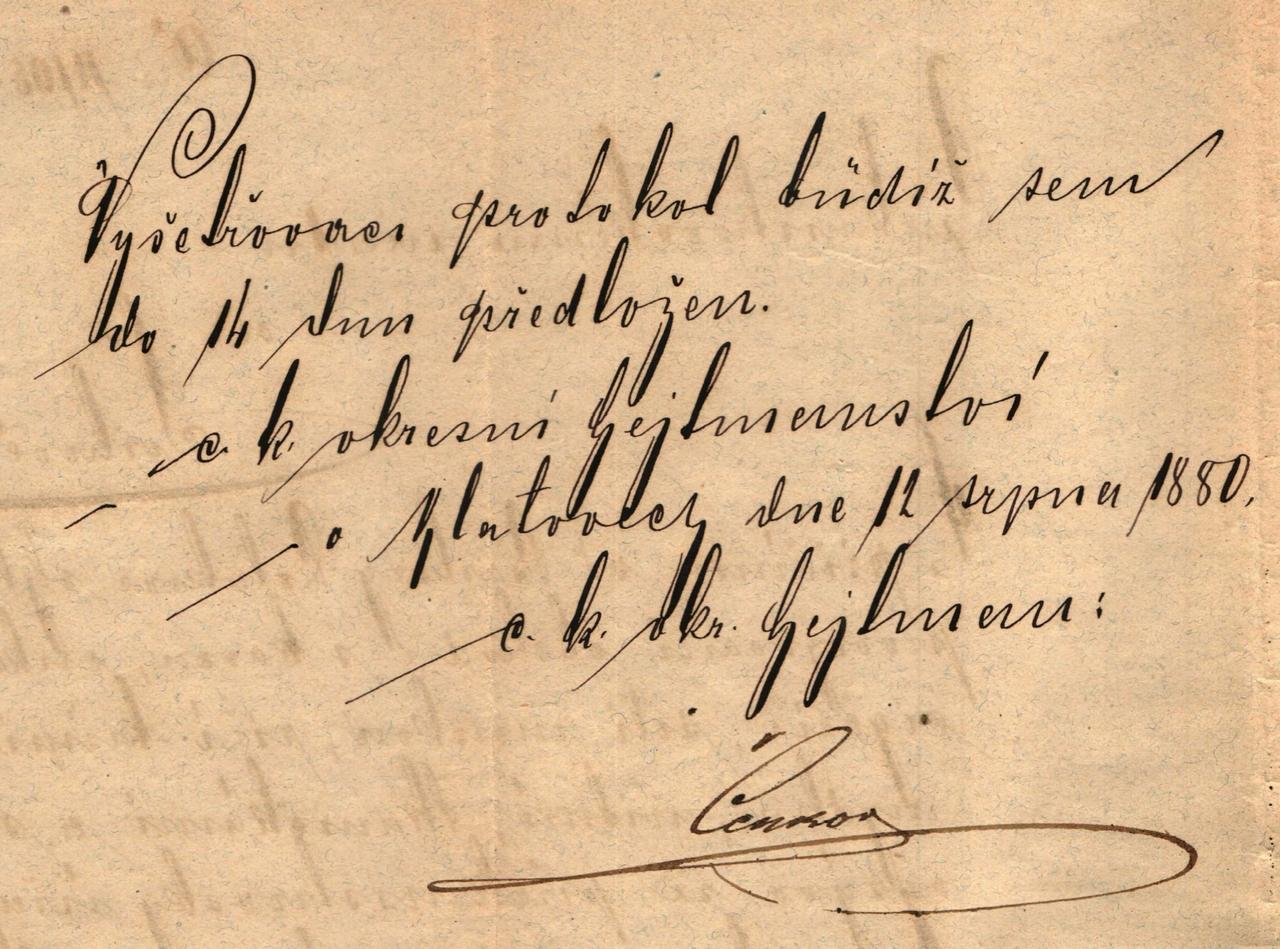 Vyšetřovaci protokol budiž sem
do 14 dnu předložen.
c. k. okresní hejtmanství
v Klatovech dne 12 srpna 1880.
c. k. okr. hejtman: